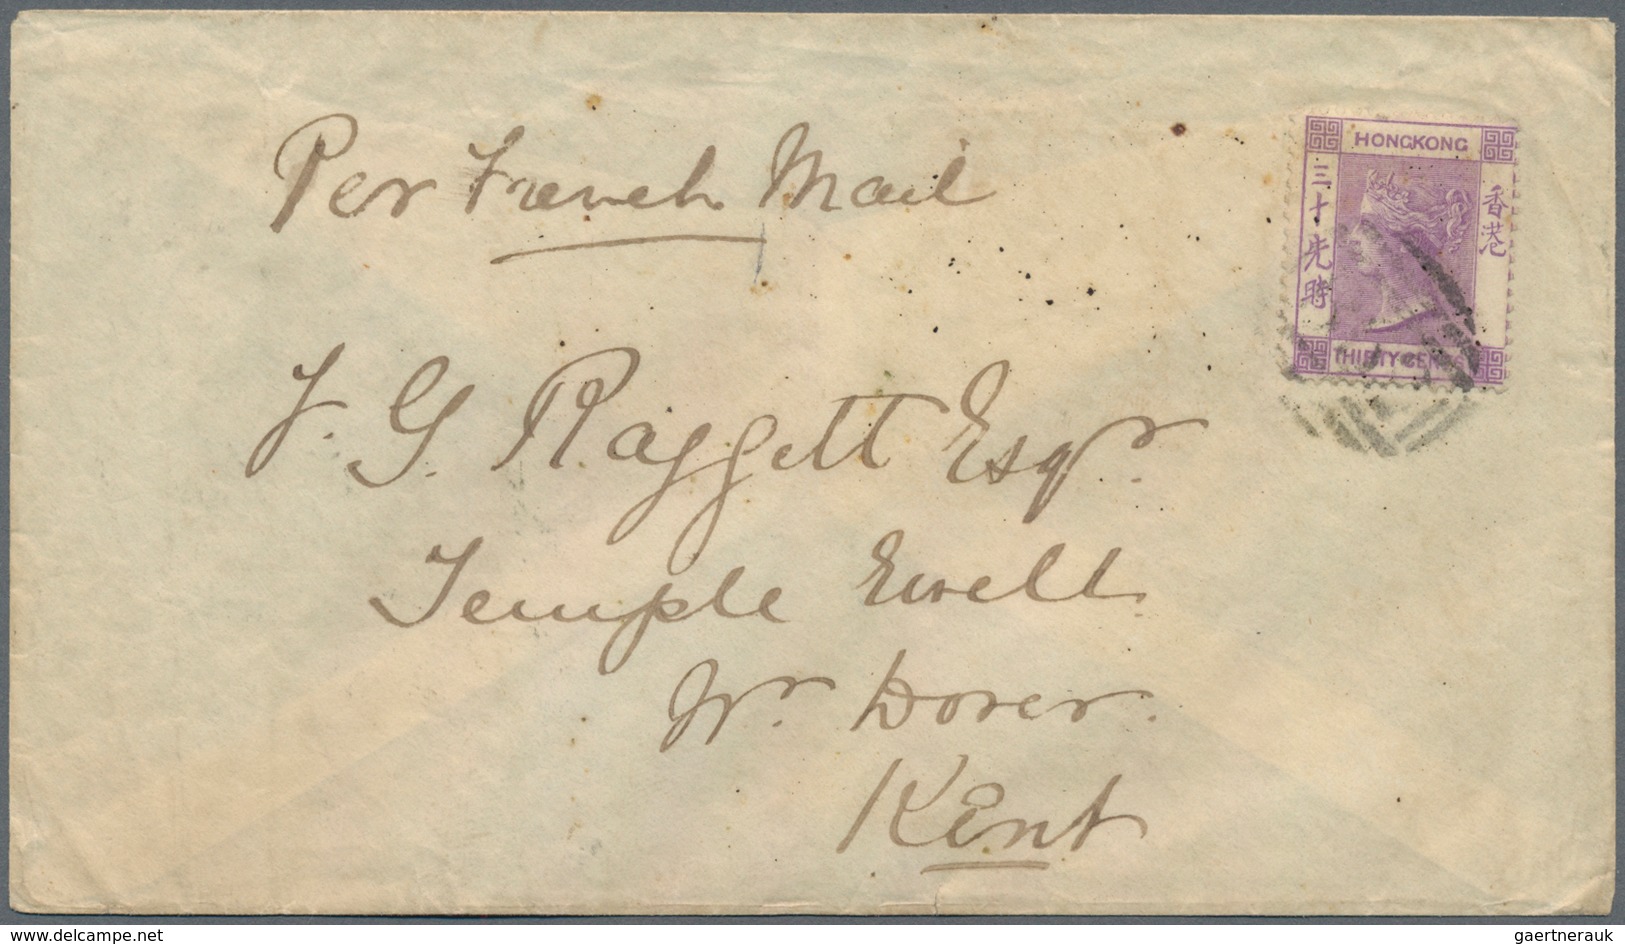 Per French Mail
HONGKONG
香港
三十先時
THIRTY CENTS
J. G. Raggett Esqr.
Temple Ewell
Nr. Dover.
Kent
www.delcampe.net
gaertnerauk